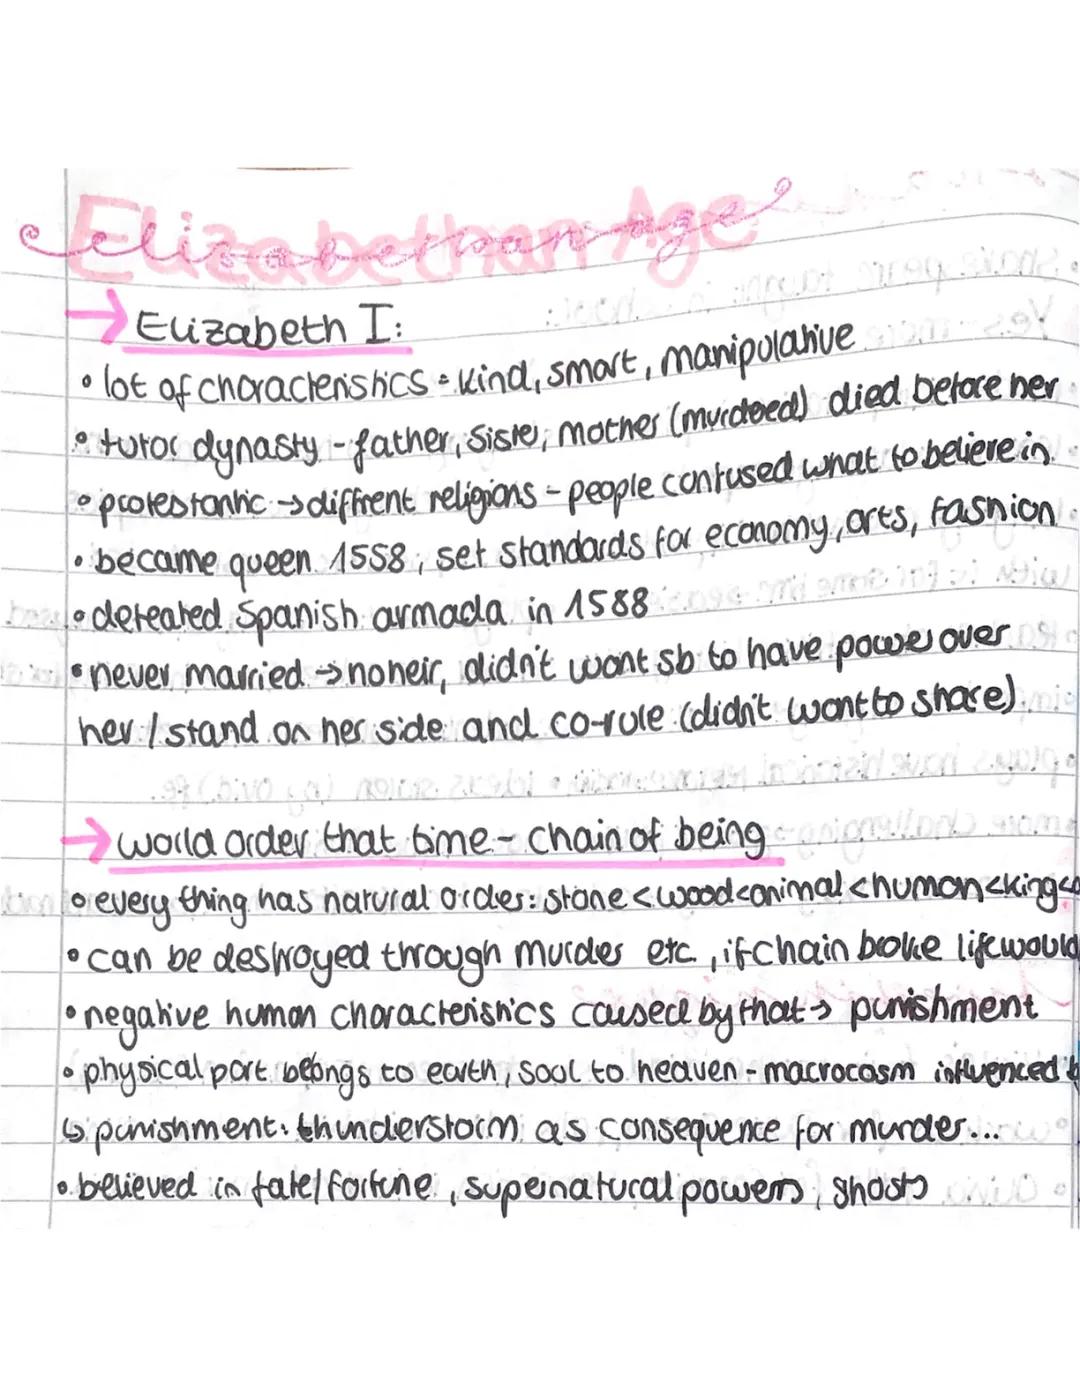 Elizabethan Age
→ Elizabeth I:
• lot of characteristics = kind, smart, manipulative
• tutor dynasty - father, sister, mother (murdered) died before her
• protestantic → diffrent religions - people confused what to believe in
• became queen 1558, set standards for economy, arts, fashion
• defeated Spanish armada in 1588
• never married → no heir, didn't want sb to have power over
her / stand on her side and co-rule (didn't want to share)
→ world order that time - chain of being
• every thing has natural order: stone < wood < animal < human < king <
• can be destroyed through murder etc, if chain broke life would
• negative human characteristics caused by that → punishment
• physical part belongs to earth, soul to heaven - macrocosm influenced
↳ punishment: thunderstorm as consequence for murder...
• believed in fate/fortune, supernatural powers, ghosts